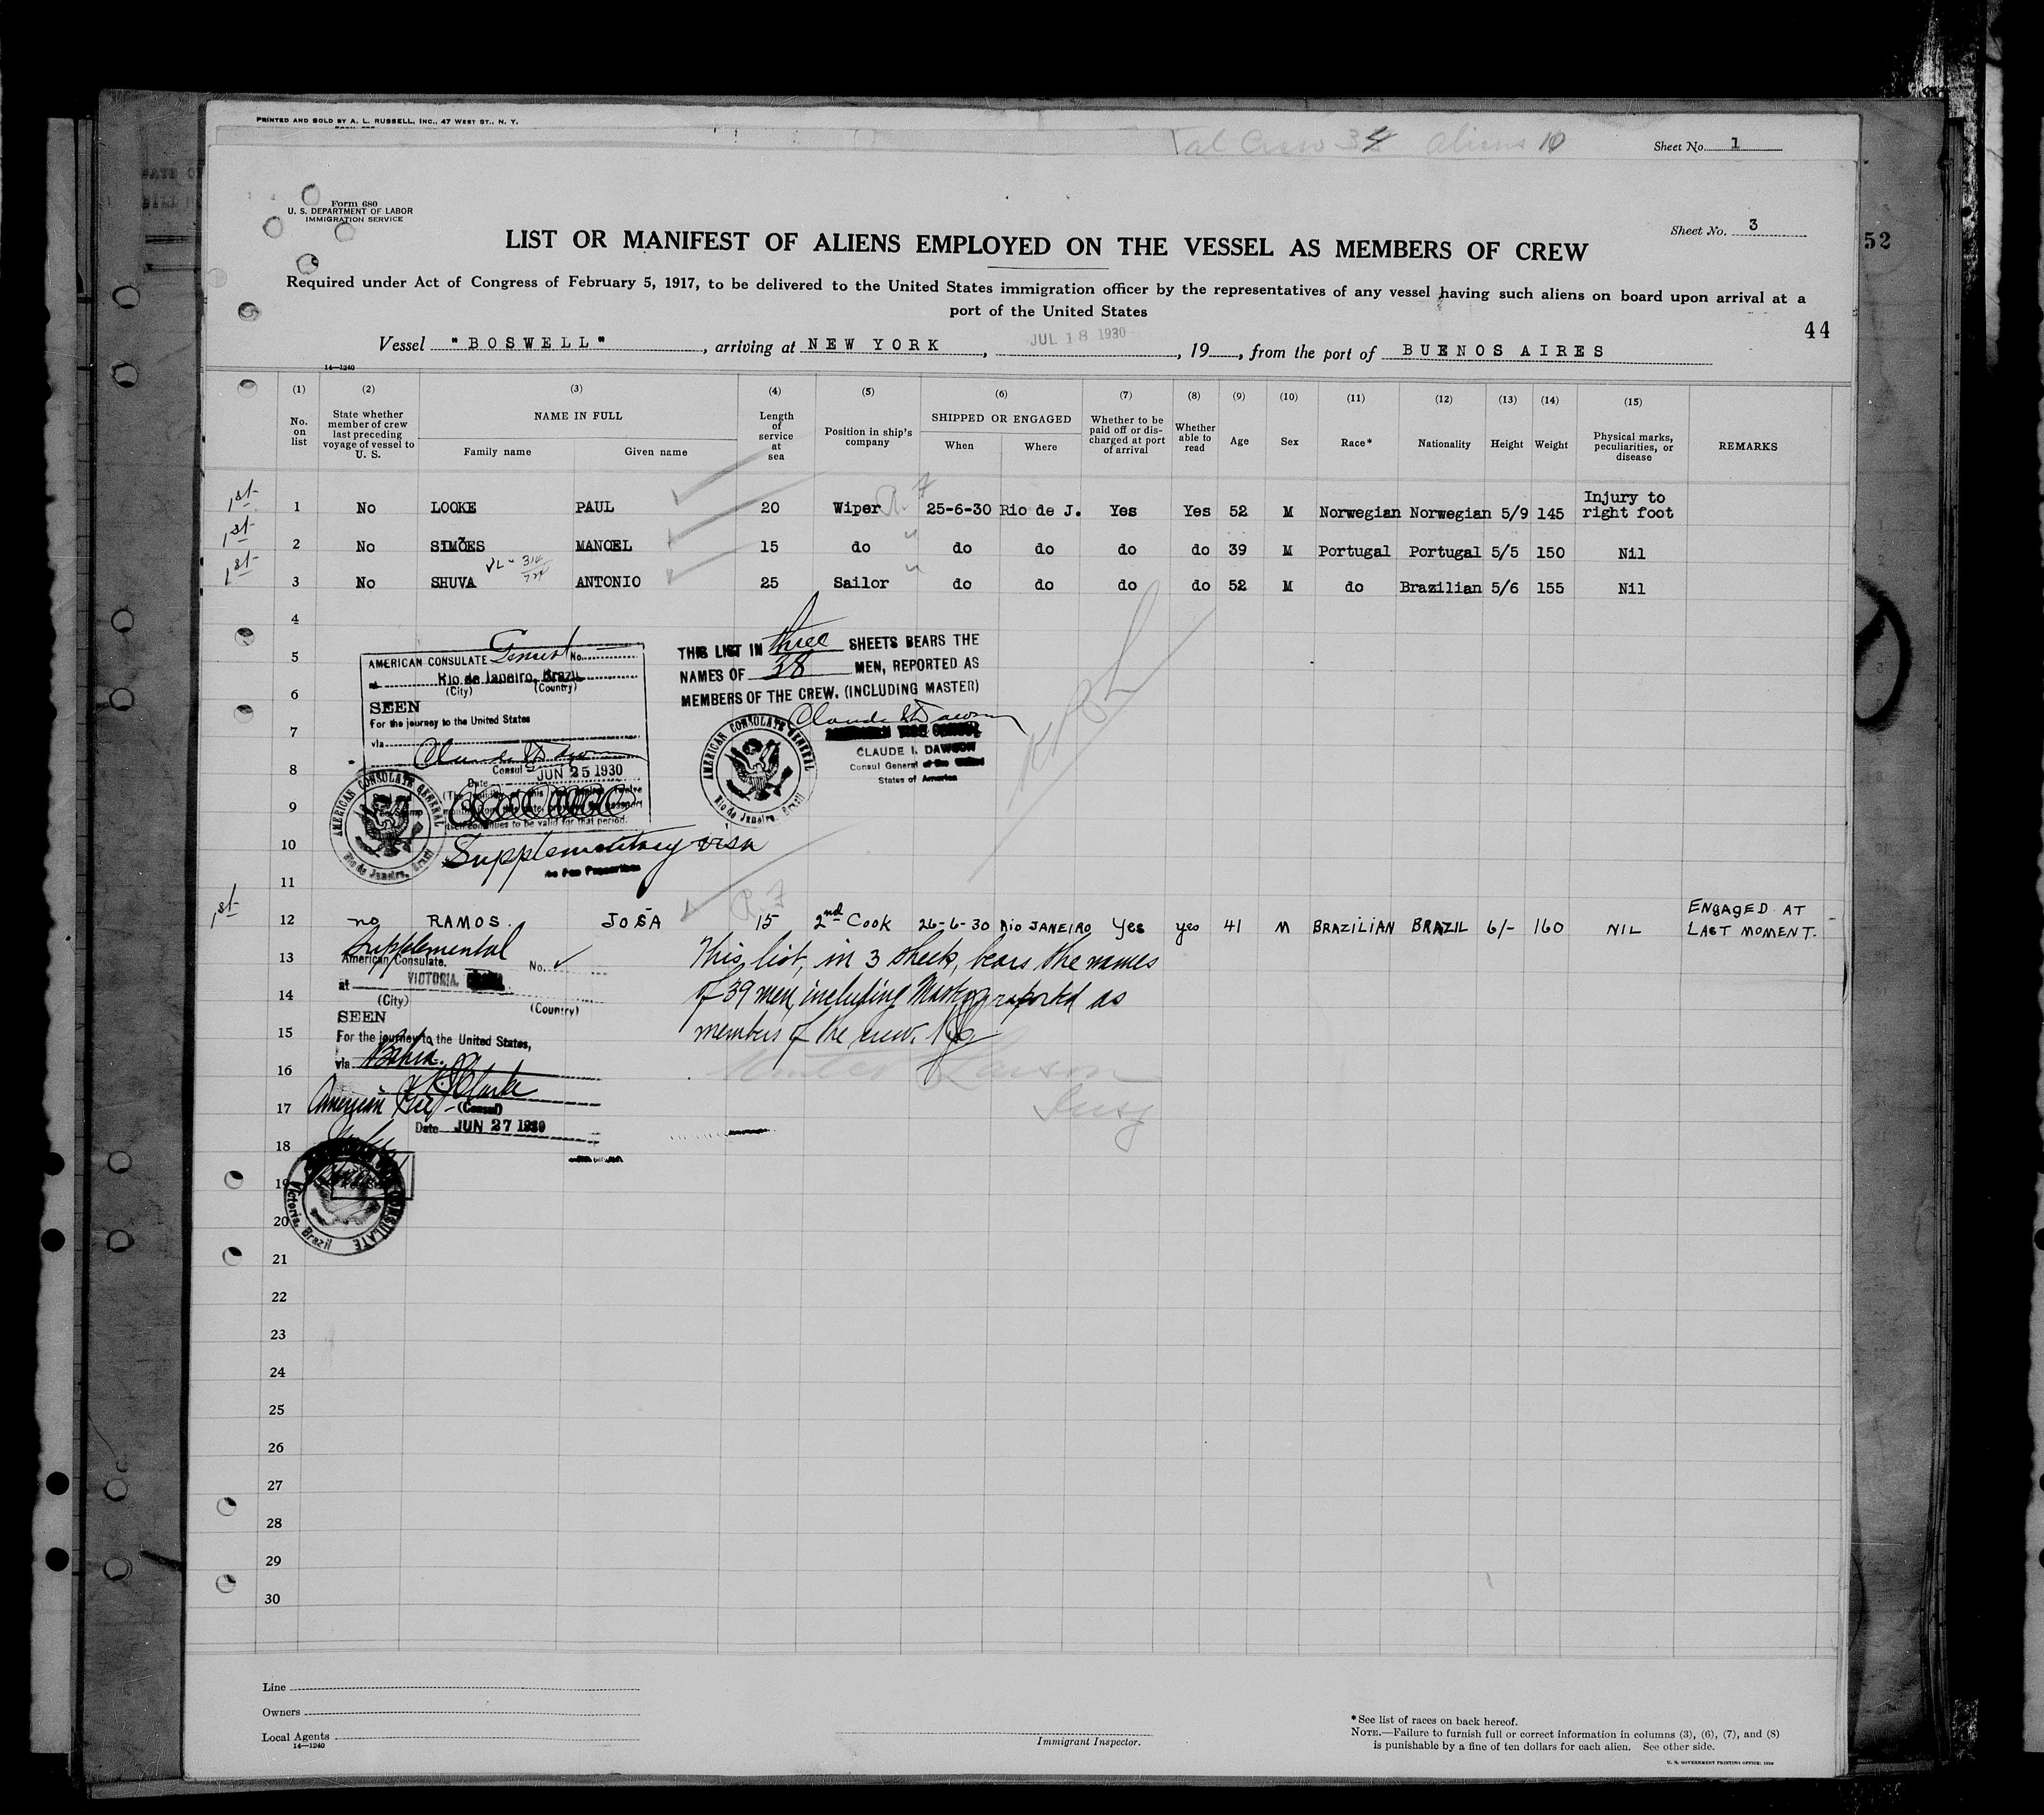 PRINTED AND SOLD BY A. L. RUSSELL, INC., 47 WEST ST., N. Y.
al Crew 34 aliens 10
Sheet No. 1
Form 680
U. S. DEPARTMENT OF LABOR
IMMIGRATION SERVICE
Sheet No. 3
52
LIST OR MANIFEST OF ALIENS EMPLOYED ON THE VESSEL AS MEMBERS OF CREW
Required under Act of Congress of February 5, 1917, to be delivered to the United States immigration officer by the representatives of any vessel having such aliens on board upon arrival at a
port of the United States
44
Vessel "BOSWELL", arriving at NEW YORK, JUL 18 1930, 19, from the port of BUENOS AIRES
14—1240
(1) (2) (3) (4) (5) (6) (7) (8) (9) (10) (11) (12) (13) (14) (15)
No. on list
State whether member of crew last preceding voyage of vessel to U. S.
NAME IN FULL
Family name Given name
Length of service at sea
Position in ship's company
SHIPPED OR ENGAGED
When Where
Whether to be paid off or discharged at port of arrival
Whether able to read
Age Sex Race* Nationality Height Weight
Physical marks, peculiarities, or disease
REMARKS
1st 1 No LOOKE PAUL 20 Wiper 25-6-30 Rio de J. Yes Yes 52 M Norwegian Norwegian 5/9 145 Injury to right foot
1st 2 No SIMÕES MANOEL 15 do do do do do 39 M Portugal Portugal 5/5 150 Nil
1st 3 No SHUVA ANTONIO 25 Sailor do do do do 52 M do Brazilian 5/6 155 Nil
4
5
6
7
8
9
10
11
AMERICAN CONSULATE General No.
at Rio de Janeiro, Brazil
(City) (Country)
SEEN
For the journey to the United States
via
Consul
Date JUN 25 1930
then continues to be valid for that period.
AMERICAN CONSULATE GENERAL
Rio de Janeiro, Brazil
Supplementary visa
No Fee Prescribed
THIS LIST IN three SHEETS BEARS THE
NAMES OF 38 MEN, REPORTED AS
MEMBERS OF THE CREW. (INCLUDING MASTER)
CLAUDE I. DAWSON
Consul General of the United
States of America
AMERICAN CONSULATE GENERAL
Rio de Janeiro, Brazil
1st 12 no RAMOS. JOSA 15 2nd Cook 26-6-30 Rio JANEIRO Yes yes 41 M BRAZILIAN BRAZIL 6/- 160 NIL ENGAGED AT LAST MOMENT.
13
14
15
16
17
18
19
20
21
22
23
24
25
26
27
28
29
30
Supplemental
American Consulate, No.
at VICTORIA,
(City) (Country)
SEEN
For the journey to the United States,
via Bahia.
American
(Consul)
Date JUN 27 1930
CONSULATE
Victoria, Brazil
This list, in 3 sheets, bears the names
of 39 men, including Master, reported as
members of the crew.
Line
Owners
Local Agents
14—1240
Immigrant Inspector.
*See list of races on back hereof.
NOTE.—Failure to furnish full or correct information in columns (3), (6), (7), and (8)
is punishable by a fine of ten dollars for each alien. See other side.
U. S. GOVERNMENT PRINTING OFFICE: 1929